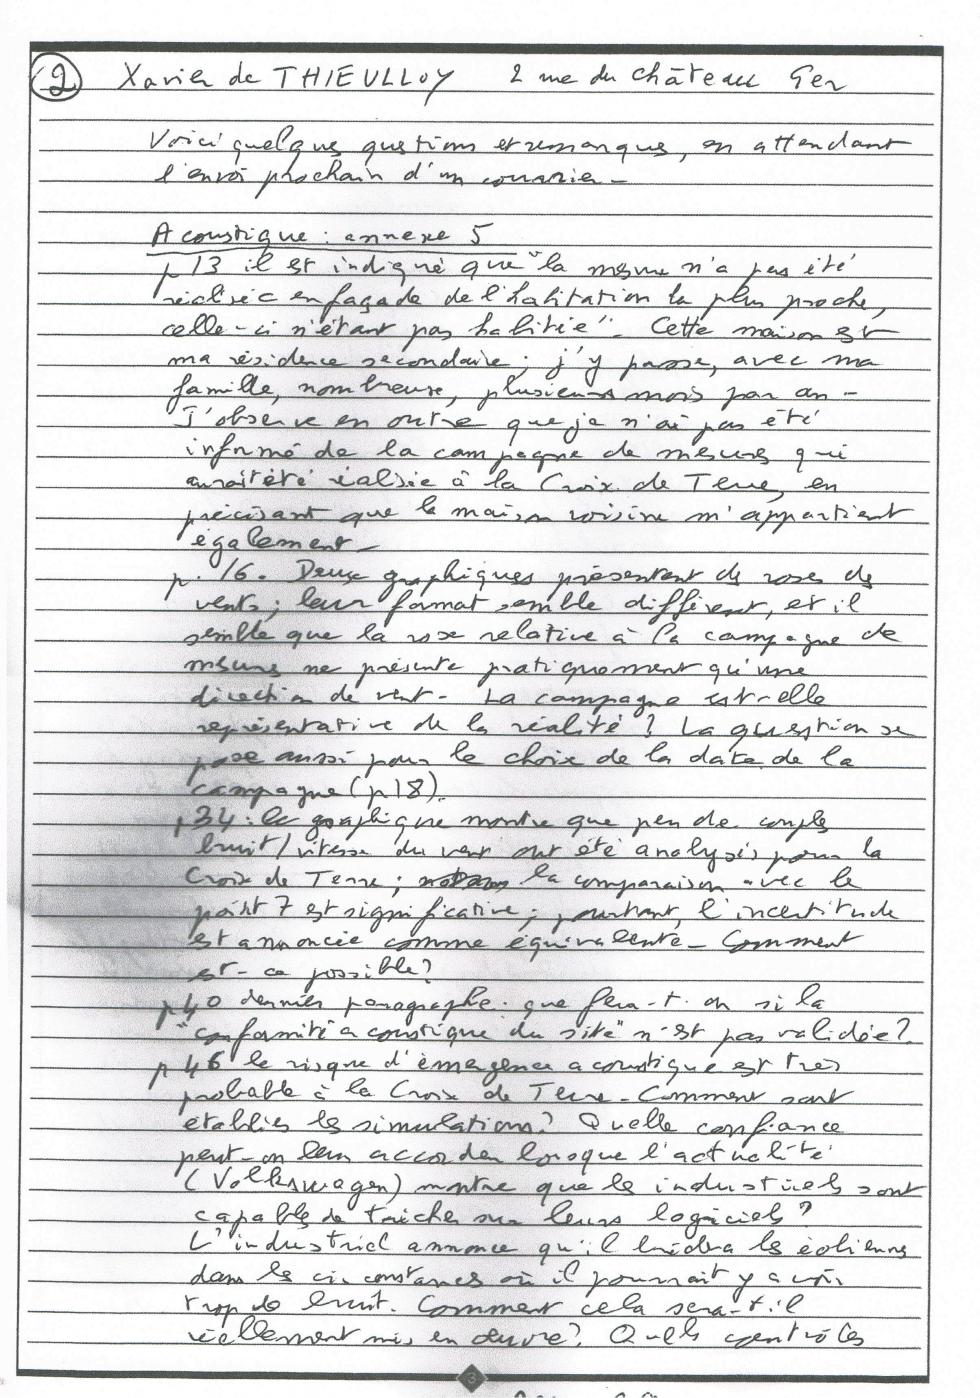 2 Xavier de THIEULLOY 2 rue du château Ger
Voici quelques questions et remarques, en attendant
l'envoi prochain d'un courrier -
Acoustique : annexe 5
p 13 il est indiqué que "la mesure n'a pas été
réalisée en façade de l'habitation la plus proche,
celle-ci n'étant pas habitée". Cette maison est
ma résidence secondaire ; j'y passe, avec ma
famille, nombreuse, plusieurs mois par an -
J'observe en outre que je n'ai pas été
informé de la campagne de mesures qui
aurait été réalisée à la Croix de Terre, en
précisant que la maison voisine m'appartient
également -
p. 16. Deux graphiques présentent des roses des
vents ; leur format semble différent, et il
semble que la rose relative à la campagne de
mesures ne présente pratiquement qu'une
direction de vent - La campagne est-elle
représentative de la réalité ? La question se
pose aussi pour le choix de la date de la
campagne (p 18).
p 34 : le graphique montre que peu de couples
bruit / vitesse du vent ont été analysés pour la
Croix de Terre ; la comparaison avec le
point 7 est significative ; pourtant, l'incertitude
est annoncée comme équivalente - Comment
est-ce possible ?
p 40 dernier paragraphe : que fera-t-on si la
"conformité acoustique du site" n'est pas validée ?
p 46 le risque d'émergence acoustique est très
probable à la Croix de Terre - Comment sont
établies les simulations ? Quelle confiance
peut-on leur accorder lorsque l'actualité
(Volkswagen) montre que les industriels sont
capables de tricher sur leurs logiciels ?
L'industriel annonce qu'il bridera les éoliennes
dans les circonstances où il pourrait y avoir
trop de bruit. Comment cela sera-t-il
réellement mis en œuvre ? Quels contrôles
3